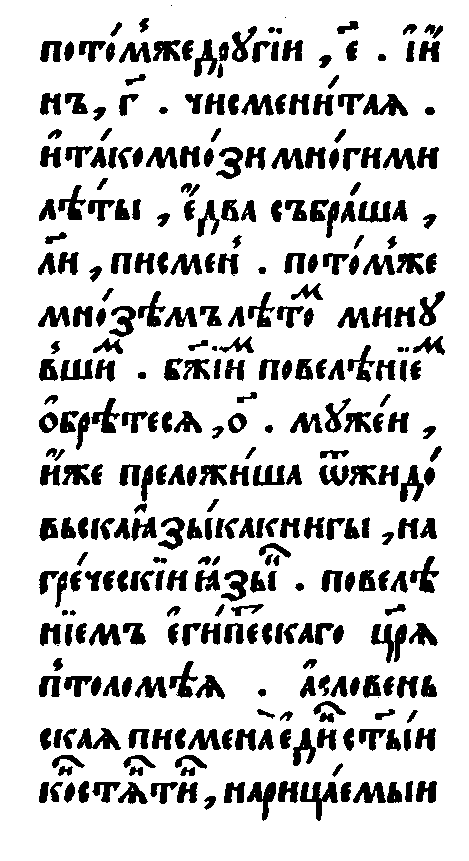 пото́мⷤ҇жедрꙋгі́и , є҃ . і҆и҆
нъ , г҃ . чисмени́таѧ .
и҆та́комно́зи мно́гими
лѣ́ты , є҆два събра́ша ,
л҃и , писмен̾ . пото́м̾же
мно́зѣмъ лѣ́тоⷨ минꙋ́
в̾шиⷨ . бж҃іиⷨ повелѣ́нїеⷨ
ѡ҆брѣ́тесѧ , о҃ . мꙋже́и ,
и҆́же преложи́ша ѿжидо́
въскаꙗ҆зы́ка книгы , на
гре́ческїи ꙗ҆зы́и . повелѣ́
нїемъ є҆ги́пⷮескаго цр҃ѧ
п̾толомѣ́ѧ . а҆словень
скаѧ писмена̀ є҆ди́ⷩ ст҃ы́и
коⷭ҇тѧⷩ҇тиⷩ , нарица́емыи